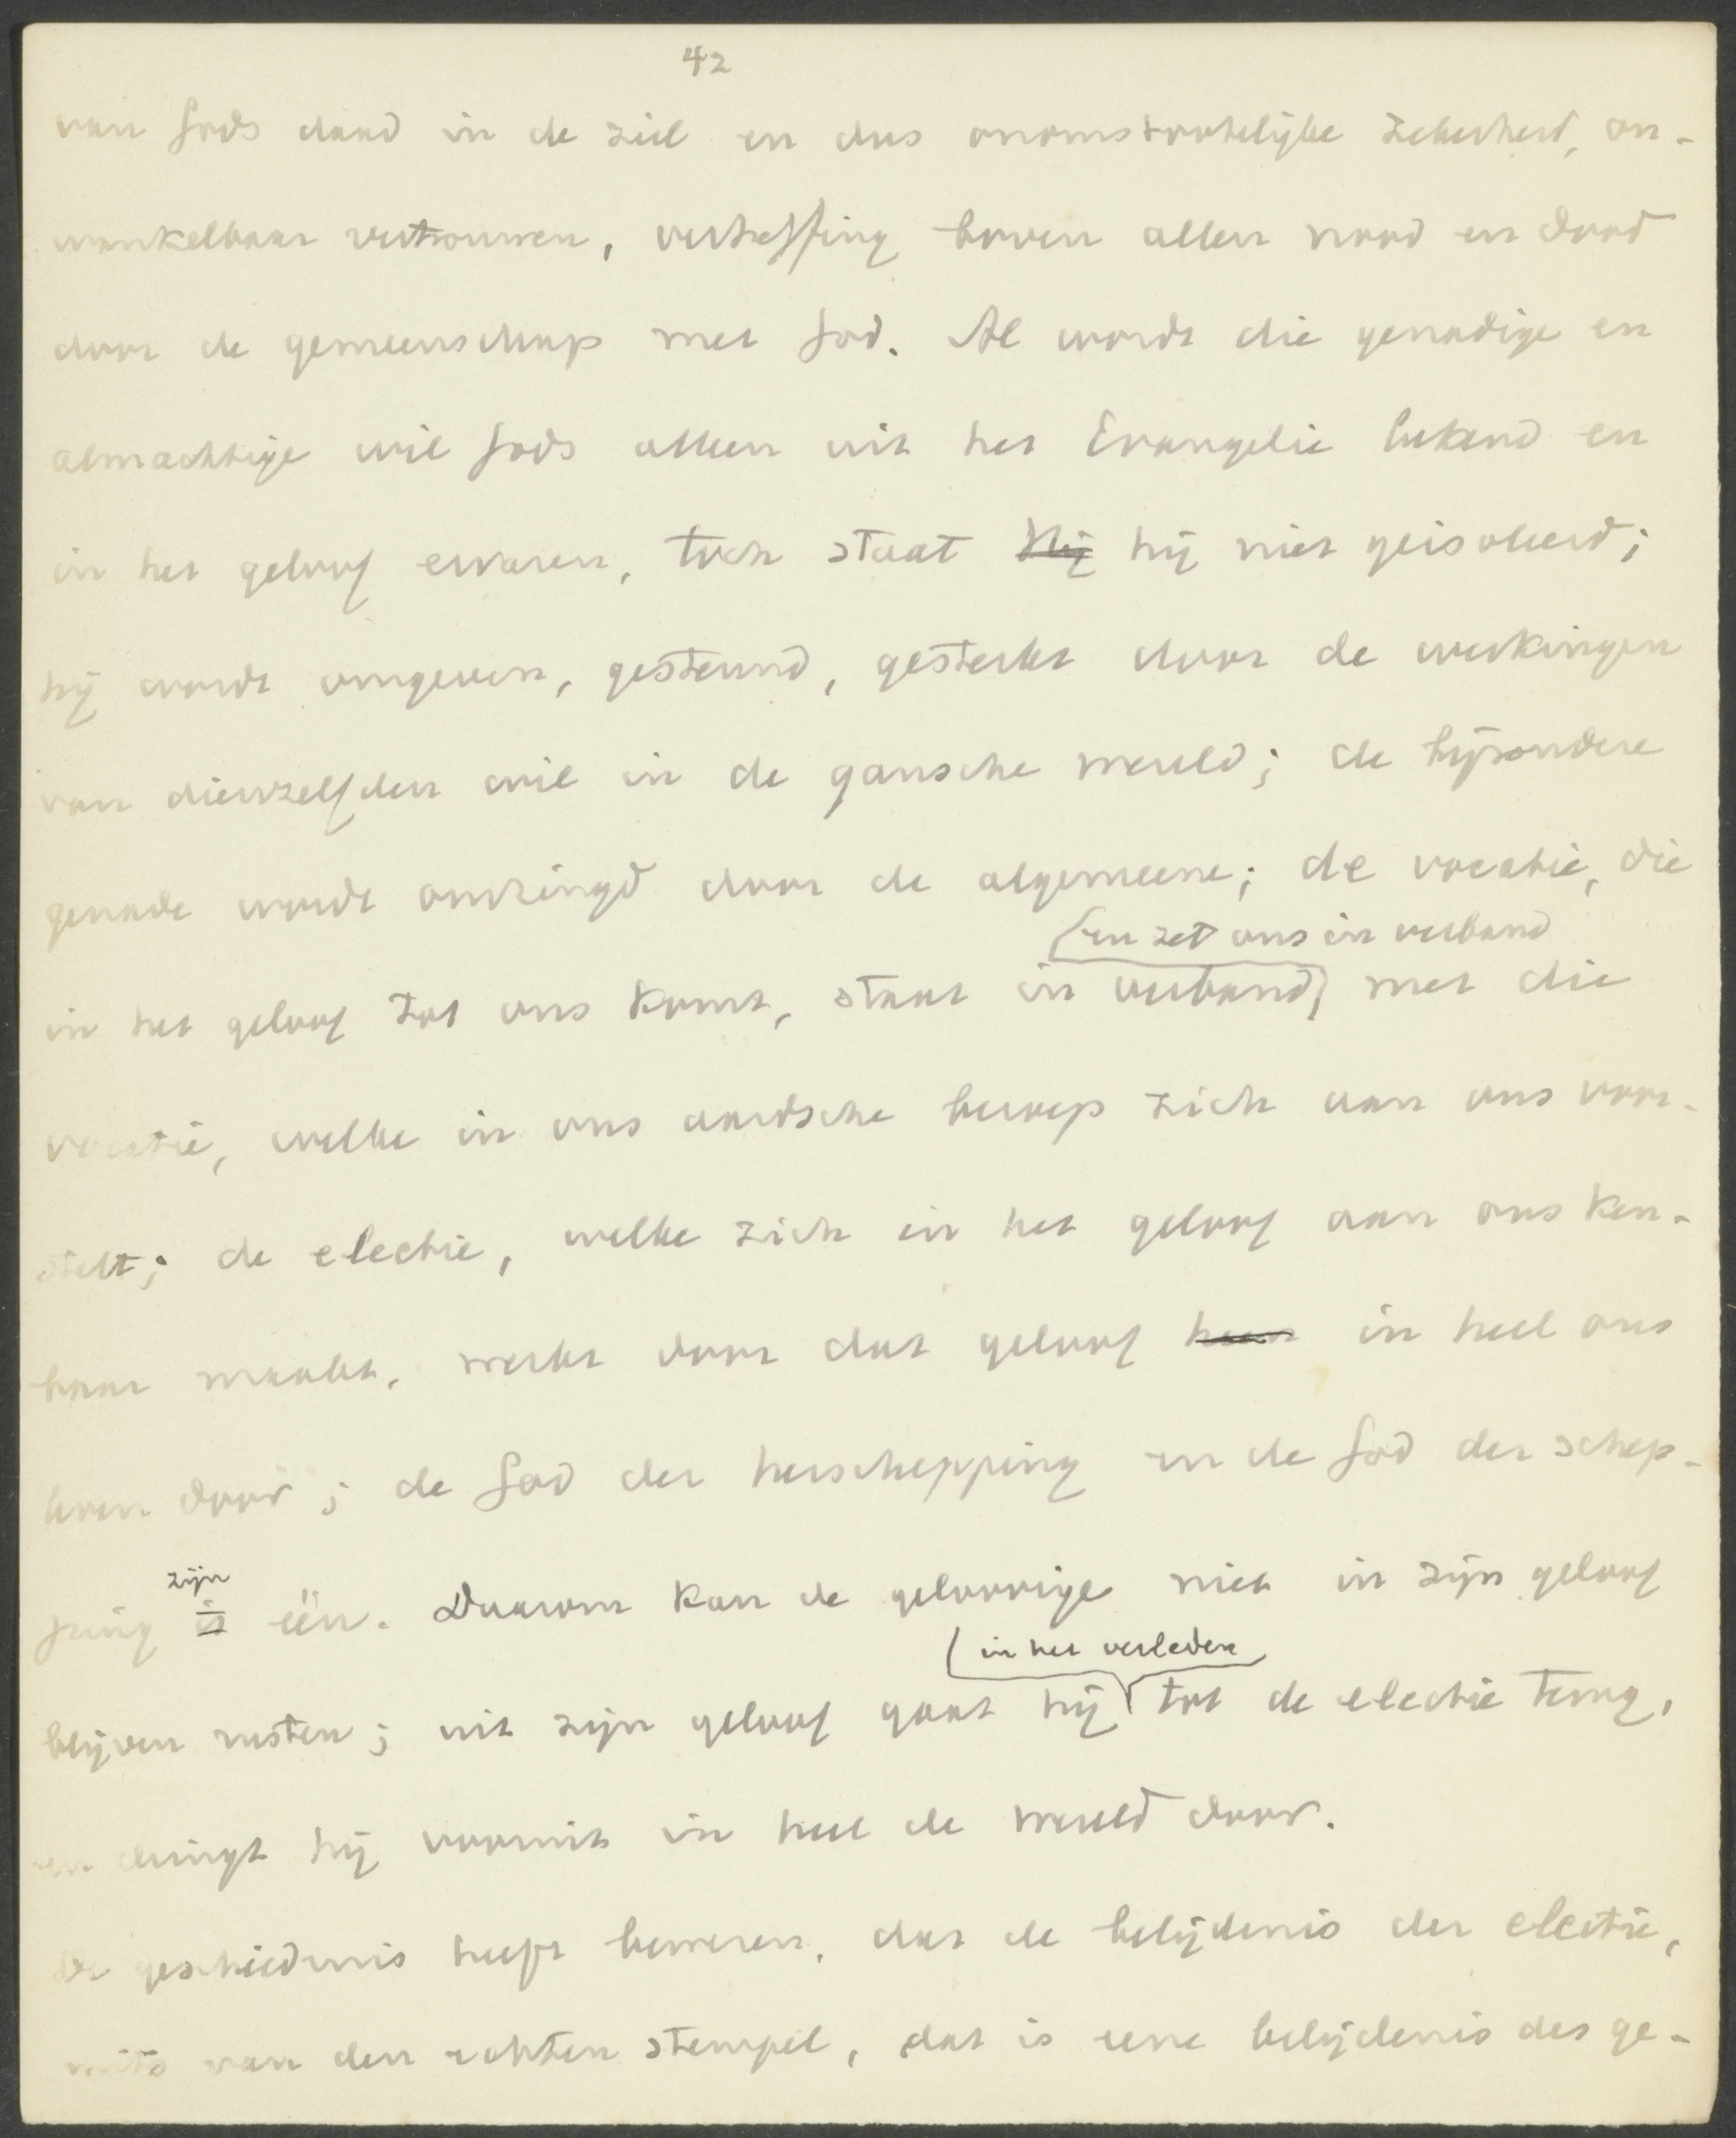 42
van Gods daad in de ziel en dus onomstootelijke zekerheid, on-
wankelbaar vertrouwen, verheffing boven allen nood en dood
door de gemeenschap met God. Al wordt die genadige en
almachtige wil Gods alleen uit het Evangelie bekend en
in het geloof ervaren, toch staat Hij hij niet geisoleerd;
hij wordt omgeven, gesteund, gesterkt door de werkingen
van dienzelfden wil in de gansche wereld; de bijzondere
genade wordt omringd door de algemeene; de vocatie, die
en zet ons in verband
in het geloof tot ons komt, staat in verband met die
vocatie, welke in ons aardsche beroep zich aan ons voor-
stelt; de electie, welke zich in het geloof aan ons ken-
baar maakt, werkt door dat geloof heen in heel ons
leven door; de God der herschepping en de God der schep-
zijn
ping is één. Daarom kan de geloovige niet in zijn geloof
in het verleden
blijven rusten; uit zijn geloof gaat hij tot de electie terug,
en dringt hij vooruit in heel de wereld door.
De geschiedenis heeft bewezen, dat de belijdenis der electie,
mits van den echten stempel, dat is eene belijdenis des ge-